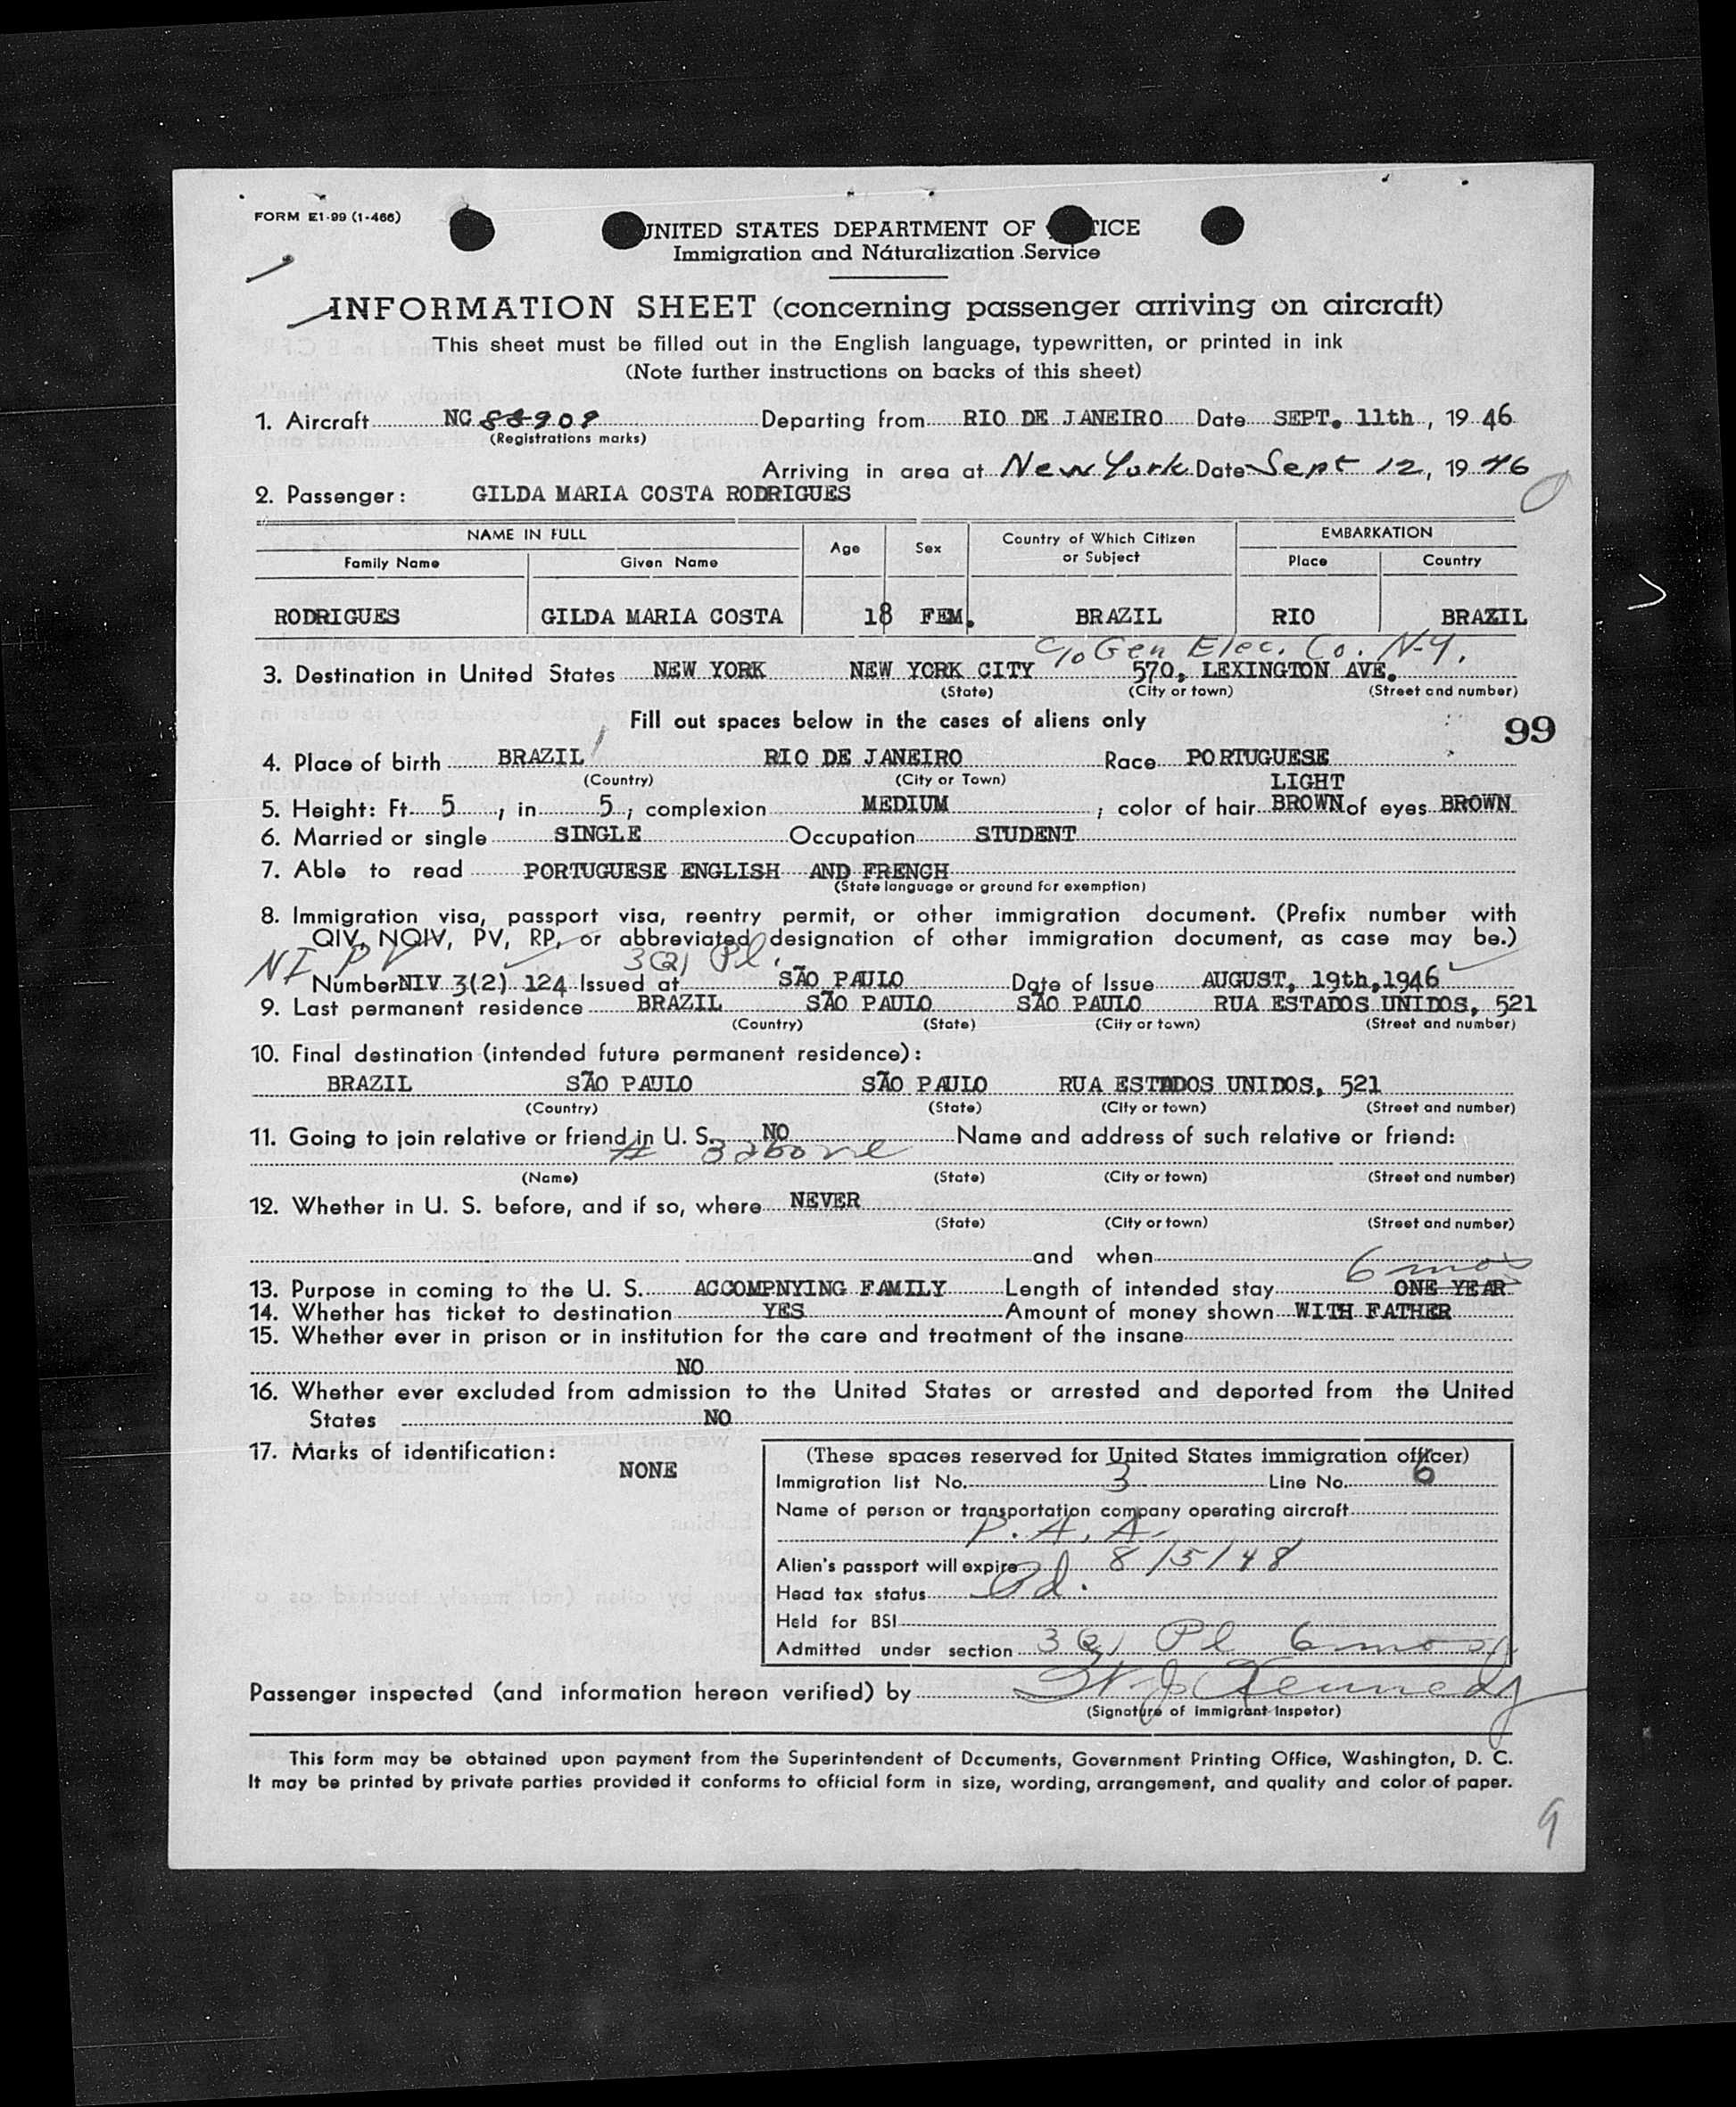 FORM E1-99 (1-466)
UNITED STATES DEPARTMENT OF TICE
Immigration and Naturalization Service
INFORMATION SHEET (concerning passenger arriving on aircraft)
This sheet must be filled out in the English language, typewritten, or printed in ink
(Note further instructions on backs of this sheet)
1. Aircraft NC 88909 Departing from RIO DE JANEIRO Date SEPT. 11th, 19 46
(Registrations marks)
Arriving in area at New York Date Sept 12, 19 46
2. Passenger: GILDA MARIA COSTA RODRIGUES
NAME IN FULL Age Sex Country of Which Citizen or Subject EMBARKATION
Family Name Given Name Place Country
RODRIGUES GILDA MARIA COSTA 18 FEM. BRAZIL RIO BRAZIL
c/o Gen Elec. Co. N-Y.
3. Destination in United States NEW YORK NEW YORK CITY 570, LEXINGTON AVE.
(State) (City or town) (Street and number)
Fill out spaces below in the cases of aliens only
99
4. Place of birth BRAZIL RIO DE JANEIRO Race PORTUGUESE
(Country) (City or Town)
LIGHT
5. Height: Ft. 5, in 5; complexion MEDIUM; color of hair BROWN of eyes BROWN
6. Married or single SINGLE Occupation STUDENT
7. Able to read PORTUGUESE ENGLISH AND FRENCH
(State language or ground for exemption)
8. Immigration visa, passport visa, reentry permit, or other immigration document. (Prefix number with
QIV, NQIV, PV, RP, or abbreviated designation of other immigration document, as case may be.)
NI PV 3(2) Pl.
Number NIV 3(2) 124 Issued at SÃO PAULO Date of Issue AUGUST, 19th,1946
9. Last permanent residence BRAZIL SÃO PAULO SÃO PAULO RUA ESTADOS UNIDOS, 521
(Country) (State) (City or town) (Street and number)
10. Final destination (intended future permanent residence):
BRAZIL SÃO PAULO SÃO PAULO RUA ESTADOS UNIDOS, 521
(Country) (State) (City or town) (Street and number)
11. Going to join relative or friend in U. S. NO Name and address of such relative or friend:
# 3 above
(Name) (State) (City or town) (Street and number)
12. Whether in U. S. before, and if so, where NEVER
(State) (City or town) (Street and number)
and when
6 mos
13. Purpose in coming to the U. S. ACCOMPNYING FAMILY Length of intended stay ONE YEAR
14. Whether has ticket to destination YES Amount of money shown WITH FATHER
15. Whether ever in prison or in institution for the care and treatment of the insane
NO
16. Whether ever excluded from admission to the United States or arrested and deported from the United
States NO
17. Marks of identification:
NONE
(These spaces reserved for United States immigration officer)
Immigration list No. 3 Line No. 6
Name of person or transportation company operating aircraft
P. A. A.
Alien's passport will expire 8/5/48
Head tax status Pd.
Held for BSI
Admitted under section 3(2) Pl 6 mos
Passenger inspected (and information hereon verified) by W J Kennedy
(Signature of Immigrant Inspetor)
This form may be obtained upon payment from the Superintendent of Documents, Government Printing Office, Washington, D. C.
It may be printed by private parties provided it conforms to official form in size, wording, arrangement, and quality and color of paper.
9